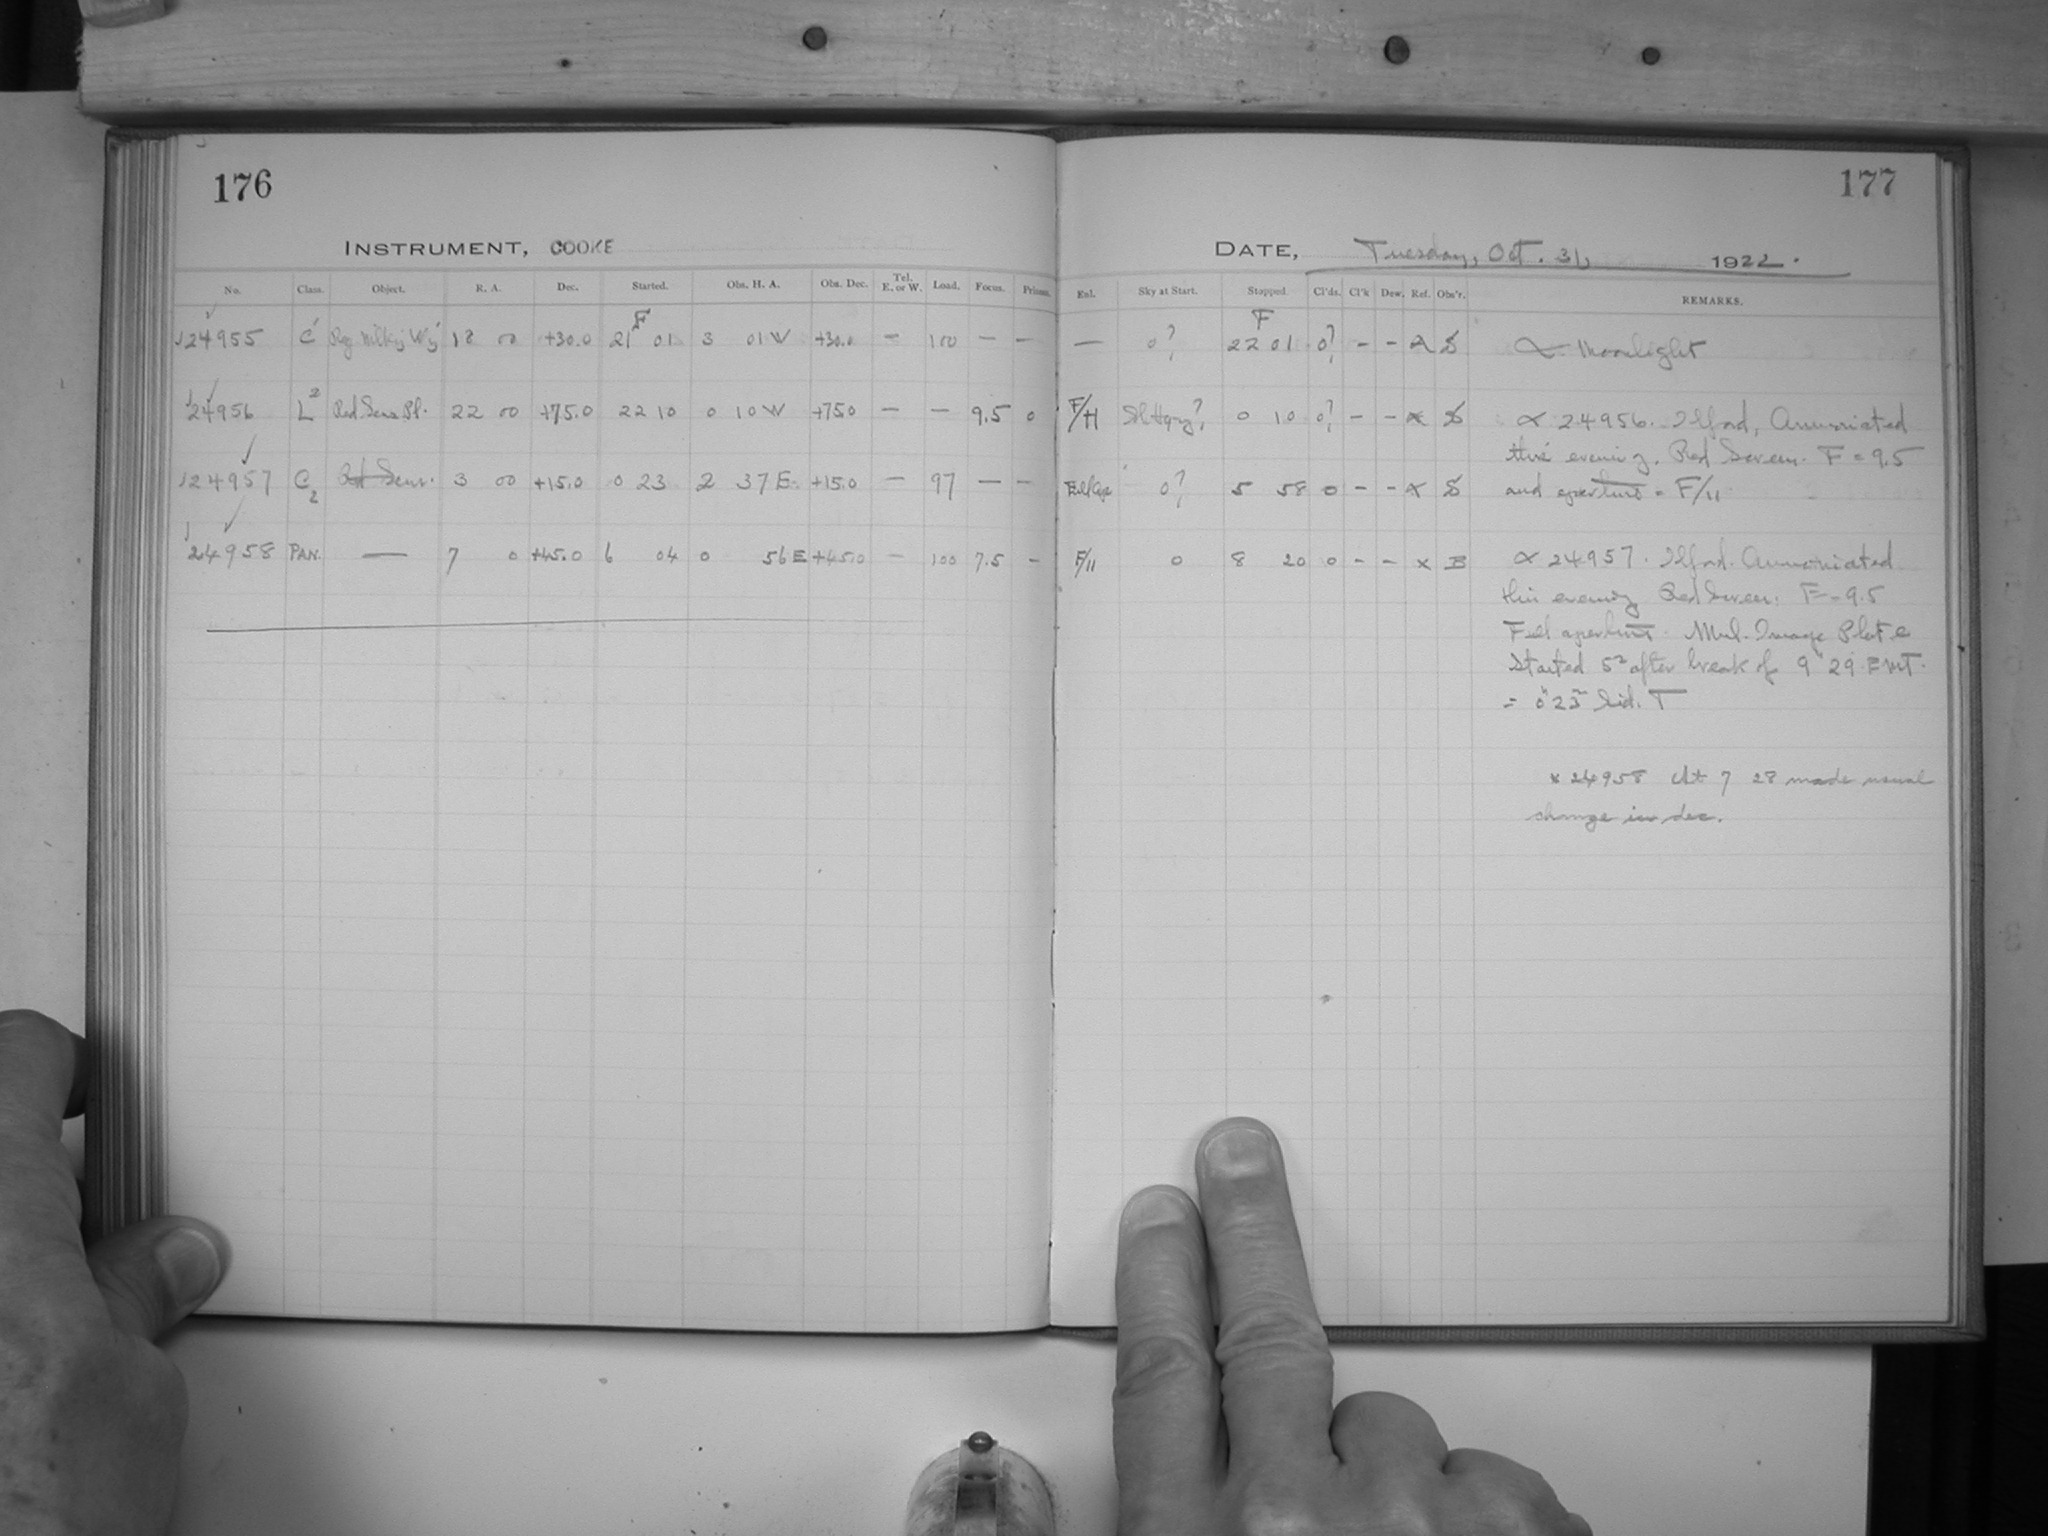 176
INSTRUMENT, COOKE
No. Class. Object. R. A. Dec. Started. Obs. H. A. Obs. Dec. Tel. E. or W. Load. Focus. Prisms.
24955 C Reg Milky Wy 18 00 +30.0 F 21 01 3 01 W +30.0 — 100 — —
24956 L2 Red Sens Pl. 22 00 +75.0 22 10 0 10 W +75.0 — — 9.5 0
24957 C2 Red Sens. 3 00 +15.0 0 23 2 37 E +15.0 — 97 — —
24958 PAN. — 7 0 +45.0 6 04 0 56 E +45.0 — 100 7.5 —
177
DATE, Tuesday, Oct. 31, 1922.
Enl. Sky at Start. Stopped. Cl'ds. Cl'k Dew. Ref. Obs'r. REMARKS.
— 0? F 22 01 0? - - A S Moonlight
F/11 Sl. Hazy? 0 10 0? - - α S α 24956. Ilford, Ammoniated
this evening. Red Screen. F = 9.5
Full Ape 0? 5 58 0 - - α S and aperture = F/11
F/11 0 8 20 0 - - x B α 24957. Ilford. Ammoniated
this evening Red Screen. F = 9.5
Full aperture. Mul. Image Plate
Started 5m after break of 9h 29 EMT.
= 0h 23m Sid. T
x 24958 At 7 28 made usual
change in dec.